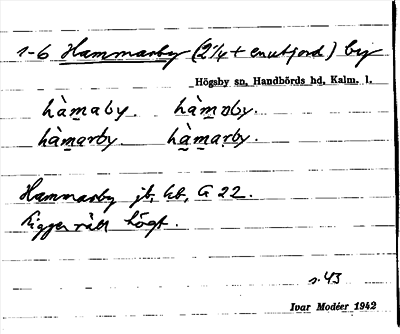 1-6 Hammarby (2 1/4 + en utjord) by
Högsby sn, Handbörds hd, Kalm. l.
hàmaby. hàmḁby.
hàmarby. hàmarby.
Hammarby jb, kb, G 22.
Ligger rätt högt.
s. 43
Ivar Modéer 1942